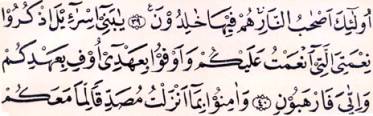 أُولٰٓئِكَ اَصْحٰبُ النَّارِ ۚ هُمْ فِيْهَا خٰلِدُوْنَ ﴿٣٩﴾ يٰبَنِيْٓ اِسْرَآءِيْلَ اذْكُرُوْا
نِعْمَتِيَ الَّتِيْٓ اَنْعَمْتُ عَلَيْكُمْ وَاَوْفُوْا بِعَهْدِيْٓ اُوْفِ بِعَهْدِكُمْ
وَاِيَّايَ فَارْهَبُوْنِ ﴿٤٠﴾ وَاٰمِنُوْا بِمَآ اَنْزَلْتُ مُصَدِّقًا لِّمَا مَعَكُمْ